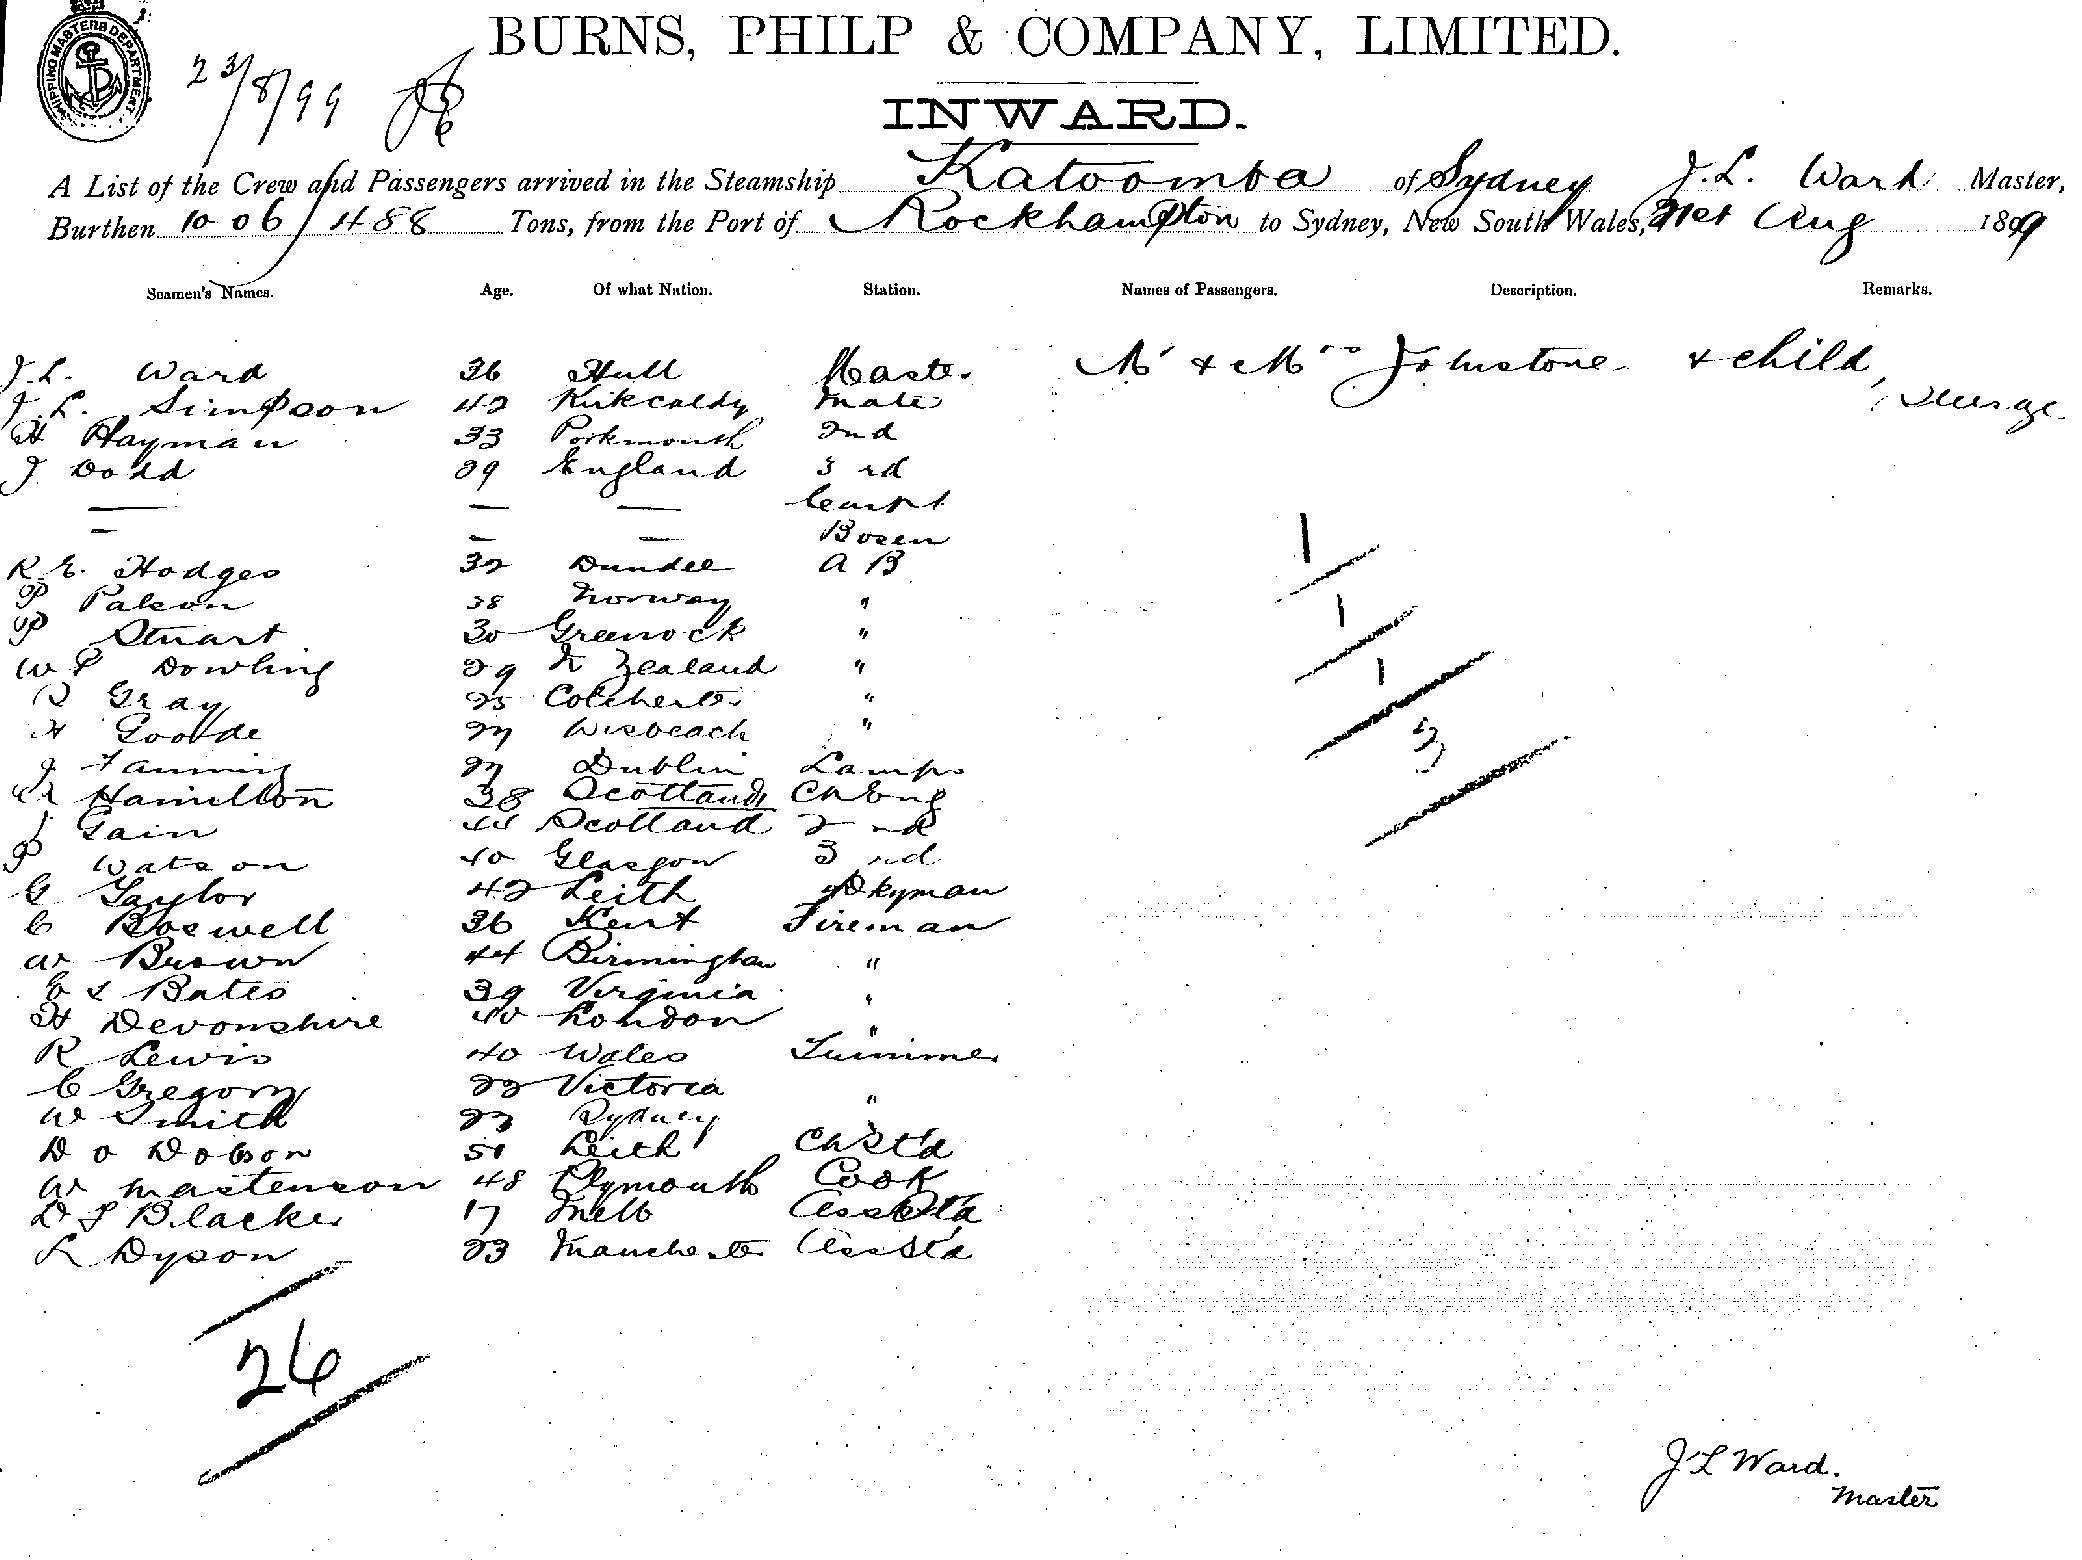 SHIPPING MASTERS DEPARTMENT
23/8/99
BURNS, PHILP & COMPANY, LIMITED.
INWARD.
A List of the Crew and Passengers arrived in the Steamship Katoomba of Sydney J. L. Ward Master,
Burthen 1006/488 Tons, from the Port of Rockhampton to Sydney, New South Wales, 21st Aug 1899
Seamen's Names. Age. Of what Nation. Station. Names of Passengers. Description. Remarks.
J. L. Ward 36 Hull Master Mr & Mrs Johnstone & child,
J. L. Simpson 42 Kirkcaldy Mate
H Hayman 33 Portsmouth 2nd
J Dodd 29 England 3rd
— — — Carpt
— — — Bosen
R. E. Hodges 32 Dundee A B
P Palson 38 Norway "
P Stuart 30 Greenock "
W P Dowling 29 N Zealand "
Gray 25 Colchester "
H Goode 27 Wisbeach "
J Fanning 27 Dublin Lamps
Hamilton 38 Scotland Ch Eng
J Gain 44 Scotland 2nd
P Watson 40 Glasgow 3rd
G Taylor 42 Leith Dkyman
C Boswell 36 Kent Fireman
W Brown 44 Birmingham "
Bates 39 Virginia "
H Devonshire 40 London "
R Lewis 40 Wales Trimmer
C Gregory 22 Victoria "
W Smith 23 Sydney "
D O Dobson 51 Leith Ch St'd
W Mastenson 48 Plymouth Cook
D S Blacker 17 Melb Ass St'd
L Dyson 23 Manchester Ass St'd
1
1
1
3
26
J L Ward.
Master